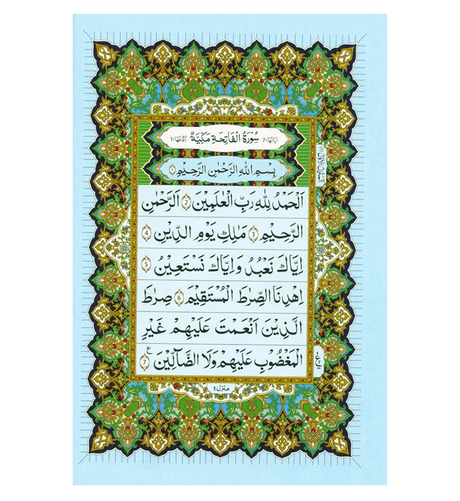 اٰيَاتُهَا ٧ سُوْرَةُ الْفَاتِحَةِ مَكِّيَّةٌ رُكُوْعُهَا ١
بِسْمِ اللّٰهِ الرَّحْمٰنِ الرَّحِيْمِ ١
اَلْحَمْدُ لِلّٰهِ رَبِّ الْعٰلَمِيْنَ ٢ الرَّحْمٰنِ
الرَّحِيْمِ ٣ مٰلِكِ يَوْمِ الدِّيْنِ ٤
اِيَّاكَ نَعْبُدُ وَاِيَّاكَ نَسْتَعِيْنُ ٥
اِهْدِنَا الصِّرَاطَ الْمُسْتَقِيْمَ ٦ صِرَاطَ
الَّذِيْنَ اَنْعَمْتَ عَلَيْهِمْ غَيْرِ
الْمَغْضُوْبِ عَلَيْهِمْ وَلَا الضَّآلِّيْنَ ٧ ع
منزل ١